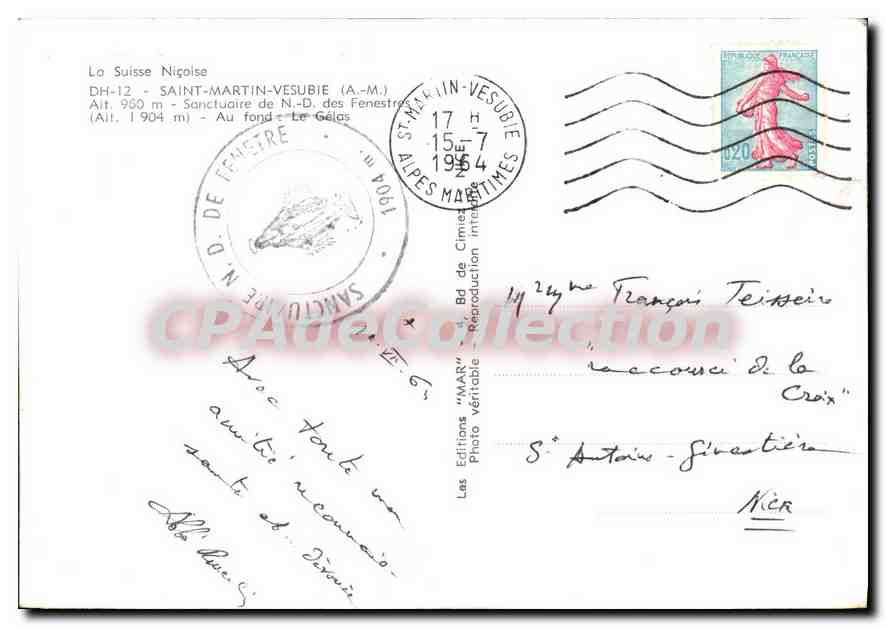 La Suisse Niçoise
DH-12 - SAINT-MARTIN-VESUBIE (A.-M.)
Alt. 960 m - Sanctuaire de N.-D. des Fenestres
(Alt. 1 904 m) - Au fond : Le Gélas
SANCTUAIRE N. D. DE FENESTRE
1904 m
ST-MARTIN-VESUBIE
17 H
15-7
1964
ALPES MARITIMES
REPUBLIQUE FRANÇAISE
0,20
POSTES
Les Editions "MAR" - Bd de Cimiez NICE
Photo véritable - Reproduction interdite
CPAdeCollection
VII
Avec toute mon
amitié reconnais-
sante et dévouée
Abbé
Mr et Mme François Teisseire
"raccourci de la
Croix"
St Antoine - Ginestière
NICE